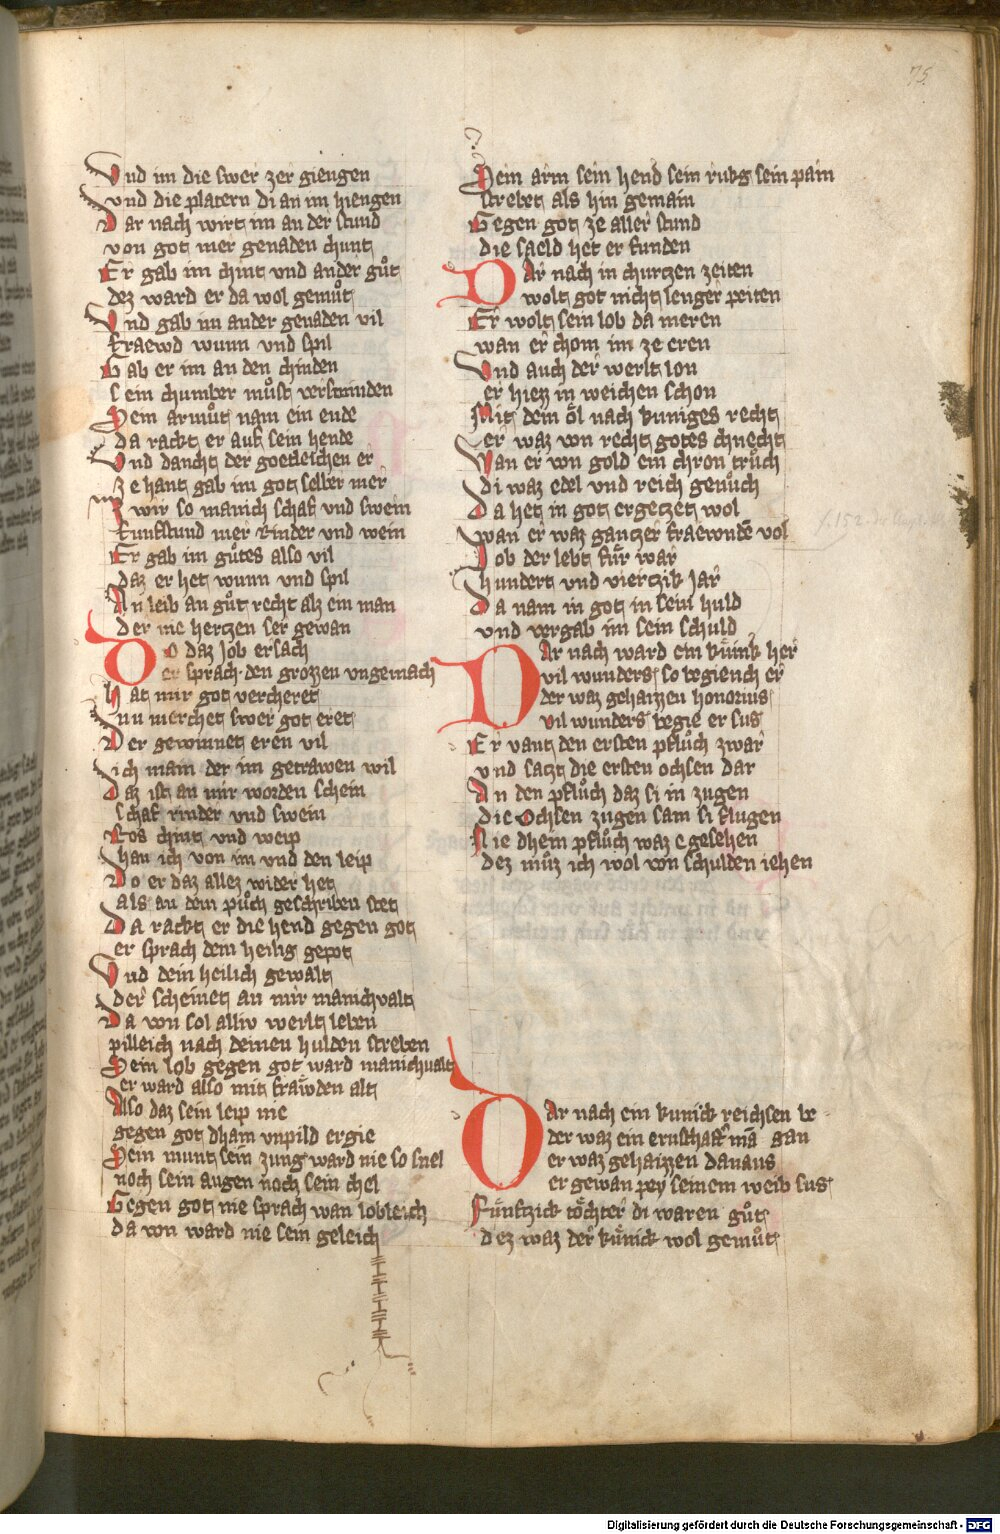 75
Vnd im die swer zer giengen
vnd die platern di an im hiengen
Dar nach wirt im an der stund
von got mer genaden chunt
Er gab im chint vnd ander guͦt
dez ward er da wol gemuͦt
Vnd gab im ander genaden vil
fraewd wunn vnd spil
Gab er im an den chinden
sein chumber muͦst verswinden
Sein armuͦt nam ein ende
da rackt er auf sein hende
Vnd dancht der goetleichen er
ze hant gab im got selber mer
Zwir so manich schaf vnd swein
funfstund mer rinder vnd wein
Er gab im guͦtes also vil
daz er het wunn vnd spil
An leib an guͦt recht alz ein man
der nie hertzen ser gewan
Do daz Job ersach
er sprach den grozzen vngemach
Hat mir got vercheret
nu merchet swer got eret
Der gewinnet eren vil
ich main der im getrawen wil
Daz ist an mir worden schein
schaf rinder vnd swein
Ros chint vnd weip
han ich von im vnd den leip
Do er daz allez wider het
als an dem puͦch geschriben stet
Da rackt er die hend gegen got
er sprach dem heilig gepot
Vnd dein heilich gewalt
der scheinet an mir manichvalt
Da von sol alliv werlt leben
pilleich nach deinen hulden streben
Sein lob gegen got ward manichualt
er ward also mit fraẅden alt
Also daz sein leip nie
gegen got dhain vnpild ergie
Sein munt sein zung ward nie so snel
noch sein augen noch sein chel
Gegen got nie sprach wan lobleich
da von ward nie sein geleich
Sein arm sein hend sein rukg sein pain
strebet als hin gemain
Gegen got ze aller stund
die saeld het er funden
Dar nach in churtzen zeiten
wolt got nicht lenger peiten
Er wolt sein lob da meren
wan er chom im ze eren
Vnd auch der werlt lon
er hiez in weichen schon
Mit dem oͤl nach kuniges recht
er waz von recht gotes chnecht
Wan er von gold ein chron truͦch
di waz edel vnd reich genuͦch
Da het in got ergetzet wol
wan er waz gantzer fraewnde vol
Job der lebt fuͤr war
hundert vnd viertzik Jar
Da nam in got in sein huld
vnd vergab im sein schuld
Dar nach ward ein kuͤnik her
vil wunders so begiench er
der waz gehaizzen honorius
vil wunders begie er sus
Er vant den ersten pfluͦch zwar
vnd satzt die ersten ochsen dar
An den pfluͦch daz si in zugen
die Ochsen zugen sam si flugen
Nie dhein pfluͦch waz e gesehen
dez muͦz ich wol von schulden iehen
Dar nach ein kunick reichsen be
der waz ein ernschaft mā gan
er waz gehaizzen danaus
er gewan pey seinem weib sus
Fuͤnftzick toͤchter di waren guͦt
dez waz der kuͤnick wol gemuͦt
Digitalisierung gefördert durch die Deutsche Forschungsgemeinschaft - DFG